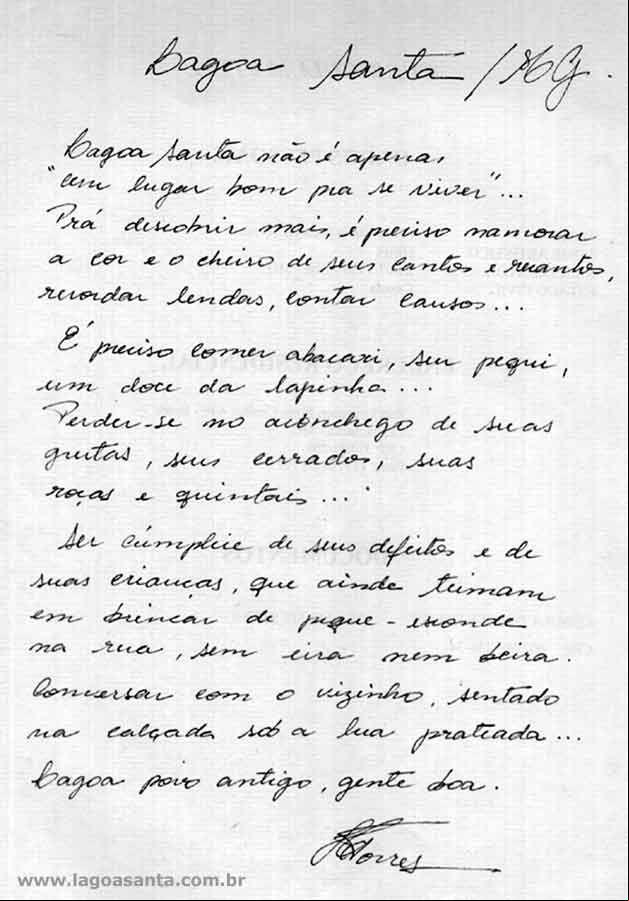 Lagoa Santa / MG.
Lagoa Santa não é apenas
"um lugar bom pra se viver"...
Prá descobrir mais, é preciso namorar
a cor e o cheiro de seus cantos e recantos,
recordar lendas, contar causos...
É preciso comer abacaxi, seu pequi,
um doce da lapinha...
Perder-se no aconchego de suas
grutas, seus cerrados, suas
roças e quintais...
Ser cúmplice de seus defeitos e de
suas crianças, que ainda teimam
em brincar de pique-esconde
na rua, sem eira nem beira.
Conversar com o vizinho, sentado
na calçada sob a lua prateada...
Lagoa povo antigo, gente boa.
Torres
www.lagoasanta.com.br